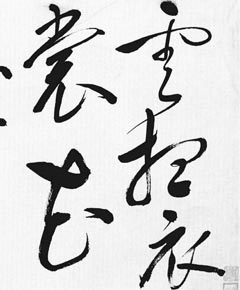 雲想衣
裳花